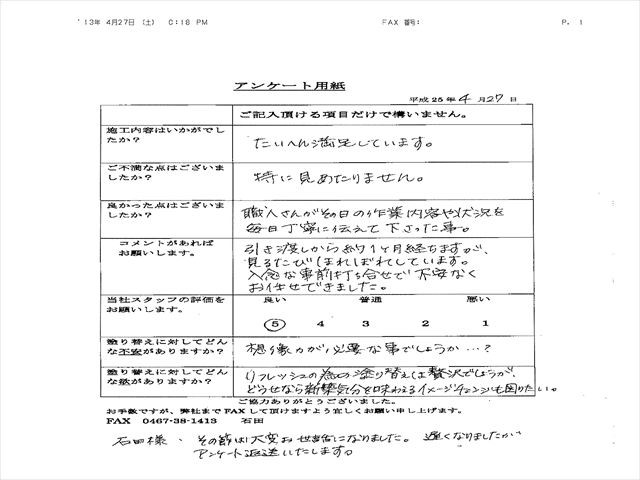 '13年 4月27日 (土) 0:18 PM FAX 番号: P. 1
アンケート用紙
平成25年4月27日
ご記入頂ける項目だけで構いません。
施工内容はいかがでしたか？
たいへん満足しています。
ご不満な点はございましたか？
特に見あたりません。
良かった点はございましたか？
職人さんがその日の作業内容や状況を
毎日丁寧に伝えて下さった事。
コメントがあればお願いします。
引き渡しから約1ヶ月経ちますが、
見るたびにほればれしています。
入念な事前打ち合せで不安なく
お任せできました。
当社スタッフの評価をお願いします。
良い 普通 悪い
5 4 3 2 1
塗り替えに対してどんな不安がありますか？
想像力が必要な事でしょうか…？
塗り替えに対してどんな欲がありますか？
リフレッシュの為の塗り替えは贅沢でしょうが、
どうせなら新築気分を味わえるイメージチェンジも図りたい。
ご協力ありがとうございました。
お手数ですが、弊社までFAXして頂けますよう宜しくお願い申し上げます。
FAX 0467-38-1413 石田
石田様、その節は大変お世話になりました。遅くなりましたが
アンケート返送いたします。